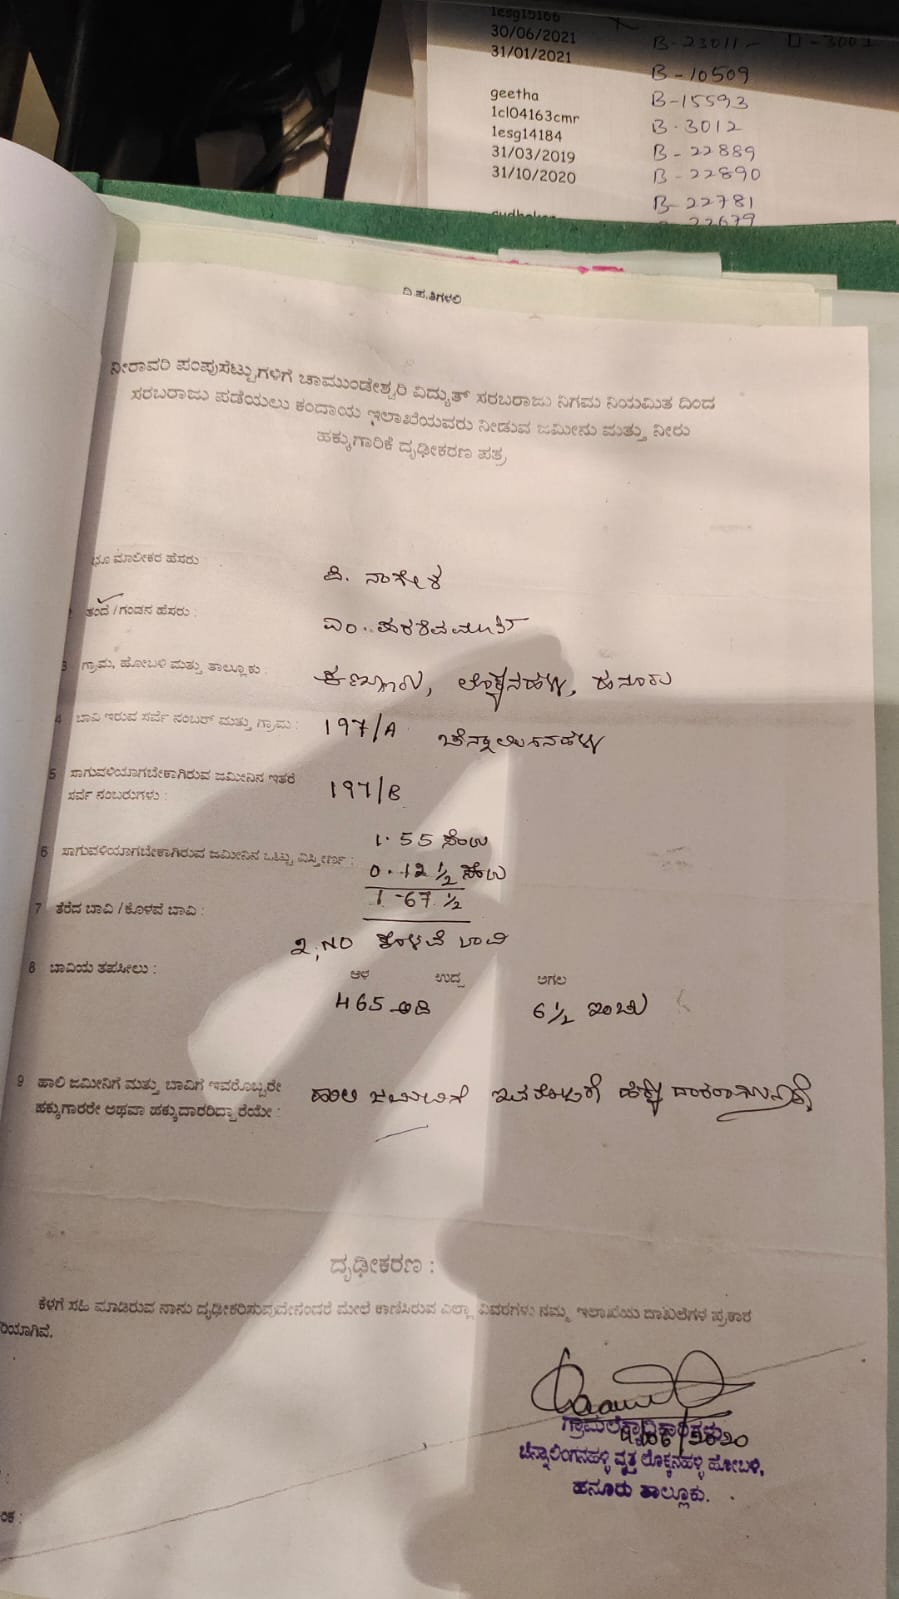 1esg15166
30/06/2021
31/01/2021
B-23011-
B-10509
geetha
B-15593
1cl04163cmr
B-3012
1esg14184
B-22889
31/03/2019
B-22890
31/10/2020
B-22781
22679
ದಿ.ಪ.ತಿಗಳಲಿ
ನೀರಾವರಿ ಪಂಪುಸೆಟ್ಟುಗಳಿಗೆ ಚಾಮುಂಡೇಶ್ವರಿ ವಿದ್ಯುತ್ ಸರಬರಾಜು ನಿಗಮ ನಿಯಮಿತ ದಿಂದ
ಸರಬರಾಜು ಪಡೆಯಲು ಕಂದಾಯ ಇಲಾಖೆಯವರು ನೀಡುವ ಜಮೀನು ಮತ್ತು ನೀರು
ಹಕ್ಕುಗಾರಿಕೆ ದೃಢೀಕರಣ ಪತ್ರ
ಭೂ ಮಾಲೀಕರ ಹೆಸರು
ಪಿ. ನಾಗೇಶ
ತಂದೆ / ಗಂಡನ ಹೆಸರು :
ಎಂ. ಪರಶಿವಮೂರ್ತಿ
3 ಗ್ರಾಮ, ಹೋಬಳಿ ಮತ್ತು ತಾಲ್ಲೂಕು :
ಲೊಕ್ಕನಹಳ್ಳಿ, ಹನೂರು
4 ಬಾವಿ ಇರುವ ಸರ್ವೆ ನಂಬರ್ ಮತ್ತು ಗ್ರಾಮ :
197/A ಚೆನ್ನಾಲಿಂಗನಹಳ್ಳಿ
5 ಸಾಗುವಳಿಯಾಗಬೇಕಾಗಿರುವ ಜಮೀನಿನ ಇತರೆ
ಸರ್ವೆ ನಂಬರುಗಳು :
197/B
1.55 ಸೆಂಟು
6 ಸಾಗುವಳಿಯಾಗಬೇಕಾಗಿರುವ ಜಮೀನಿನ ಒಟ್ಟು ವಿಸ್ತೀರ್ಣ :
0.12 1/2 ಸೆಂಟು
1-67 1/2
7 ತೆರೆದ ಬಾವಿ / ಕೊಳವೆ ಬಾವಿ :
2, NO ಕೊಳವೆ ಬಾವಿ
8 ಬಾವಿಯ ತಪಸೀಲು :
ಆಳ ಉದ್ದ ಅಗಲ
465 ಅಡಿ 6 1/2 ಇಂಚು
9 ಹಾಲಿ ಜಮೀನಿಗೆ ಮತ್ತು ಬಾವಿಗೆ ಇವರೊಬ್ಬರೇ
ಹಕ್ಕುಗಾರರೇ ಅಥವಾ ಹಕ್ಕುದಾರರಿದ್ದಾರೆಯೇ :
ಹಾಲಿ ಜಮೀನಿಗೆ ಇವರೊಬ್ಬರೇ
ದೃಢೀಕರಣ :
ಕೆಳಗೆ ಸಹಿ ಮಾಡಿರುವ ನಾನು ದೃಢೀಕರಿಸುವುದೇನೆಂದರೆ ಮೇಲೆ ಕಾಣಿಸಿರುವ ಎಲ್ಲಾ ವಿವರಗಳು ನಮ್ಮ ಇಲಾಖೆಯ ದಾಖಲೆಗಳ ಪ್ರಕಾರ
ರಿಯಾಗಿವೆ.
ಗ್ರಾಮಲೆಕ್ಕಾಧಿಕಾರಿಗಳು
ಚೆನ್ನಾಲಿಂಗನಹಳ್ಳಿ ವೃತ್ತ ಲೊಕ್ಕನಹಳ್ಳಿ ಹೋಬಳಿ,
ಹನೂರು ತಾಲ್ಲೂಕು.